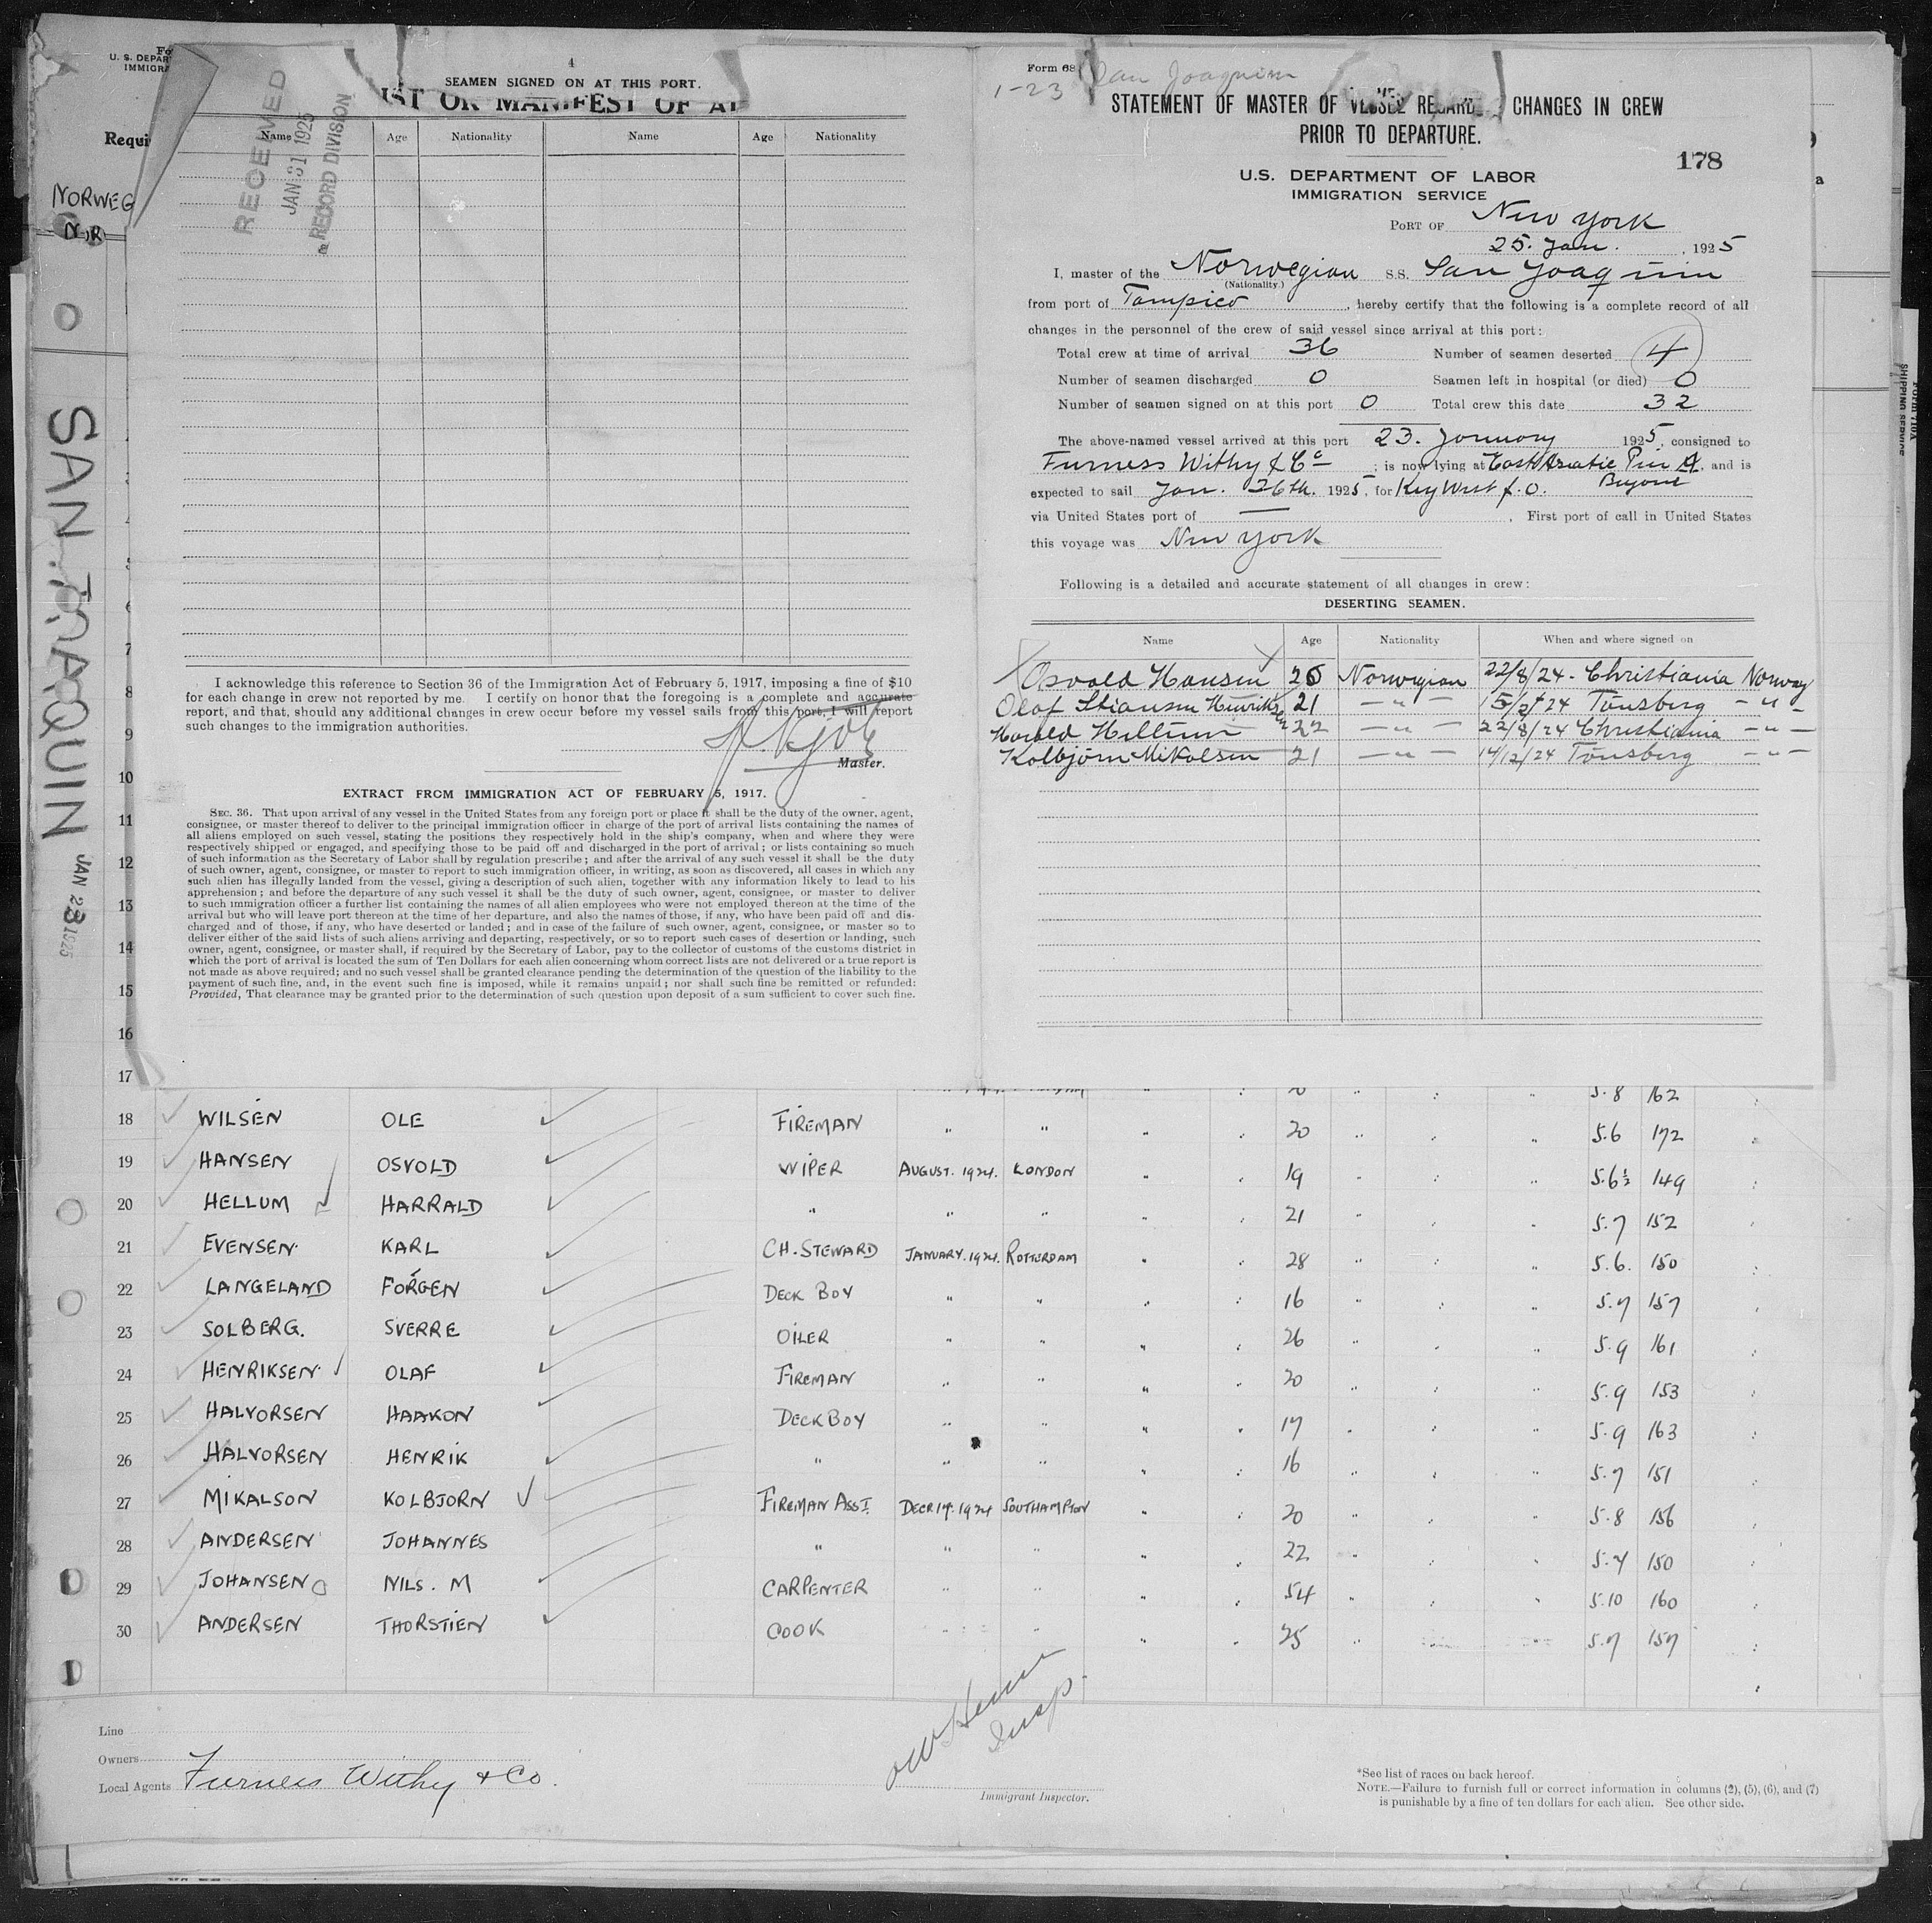 4
SEAMEN SIGNED ON AT THIS PORT.
IST OR MANIFEST OF AL
Name Age Nationality Name Age Nationality
RECEIVED
JAN 31 1925
RECORD DIVISION
U. S. DEPAR
IMMIGRA
Requi
NORWEG
NOR
SAN JOAQUIN
JAN 23 1925
I acknowledge this reference to Section 36 of the Immigration Act of February 5, 1917, imposing a fine of $10
for each change in crew not reported by me. I certify on honor that the foregoing is a complete and accurate
report, and that, should any additional changes in crew occur before my vessel sails from this port, I will report
such changes to the immigration authorities.
Master.
EXTRACT FROM IMMIGRATION ACT OF FEBRUARY 5, 1917.
SEC. 36. That upon arrival of any vessel in the United States from any foreign port or place it shall be the duty of the owner, agent,
consignee, or master thereof to deliver to the principal immigration officer in charge of the port of arrival lists containing the names of
all aliens employed on such vessel, stating the positions they respectively hold in the ship's company, when and where they were
respectively shipped or engaged, and specifying those to be paid off and discharged in the port of arrival; or lists containing so much
of such information as the Secretary of Labor shall by regulation prescribe; and after the arrival of any such vessel it shall be the duty
of such owner, agent, consignee, or master to report to such immigration officer, in writing, as soon as discovered, all cases in which any
such alien has illegally landed from the vessel, giving a description of such alien, together with any information likely to lead to his
apprehension; and before the departure of any such vessel it shall be the duty of such owner, agent, consignee, or master to deliver
to such immigration officer a further list containing the names of all alien employees who were not employed thereon at the time of the
arrival but who will leave port thereon at the time of her departure, and also the names of those, if any, who have been paid off and dis-
charged and of those, if any, who have deserted or landed; and in case of the failure of such owner, agent, consignee, or master so to
deliver either of the said lists of such aliens arriving and departing, respectively, or so to report such cases of desertion or landing, such
owner, agent, consignee, or master shall, if required by the Secretary of Labor, pay to the collector of customs of the customs district in
which the port of arrival is located the sum of Ten Dollars for each alien concerning whom correct lists are not delivered or a true report is
not made as above required; and no such vessel shall be granted clearance pending the determination of the question of the liability to the
payment of such fine, and, in the event such fine is imposed, while it remains unpaid; nor shall such fine be remitted or refunded:
Provided, That clearance may be granted prior to the determination of such question upon deposit of a sum sufficient to cover such fine.
Form 68 San Joaquin
1-23
STATEMENT OF MASTER OF VESSEL REGARD CHANGES IN CREW
PRIOR TO DEPARTURE.
178
U.S. DEPARTMENT OF LABOR
IMMIGRATION SERVICE
PORT OF New York
25. Jan. 1925
I, master of the Norwegian S.S. San Joaquin
(Nationality.)
from port of Tampico, hereby certify that the following is a complete record of all
changes in the personnel of the crew of said vessel since arrival at this port:
Total crew at time of arrival 36 Number of seamen deserted 4
Number of seamen discharged 0 Seamen left in hospital (or died) 0
Number of seamen signed on at this port 0 Total crew this date 32
The above-named vessel arrived at this port 23. January 1925, consigned to
Furness Withy & Co; is now lying at East Asiatic Pier 4, and is
expected to sail Jan. 26th. 1925, for Key West f. o.
via United States port of —. First port of call in United States
this voyage was New York
Following is a detailed and accurate statement of all changes in crew:
DESERTING SEAMEN.
Name Age Nationality When and where signed on
Osvold Hansen 20 Norwegian 22/8/24 - Christiania Norway
Olaf Stiansen Henriksen 21 — " — Tönsberg — " —
Harald Hellum 22 — " — 22/8/24 Christiania — " —
Kolbjörn Mikalsen 21 — " — 14/12/24 Tönsberg — " —
7
8
9
10
11
12
13
14
15
16
17 5.8 162
18 WILSEN OLE FIREMAN " " " 20 " 5.6 172
19 HANSEN OSVOLD WIPER AUGUST. 1924. LONDON " 19 " 5.6½ 149
20 HELLUM HARRALD " " " " 21 " 5.7 152
21 EVENSEN KARL CH. STEWARD JANUARY. 1924. ROTTERDAM " 28 " 5.6. 150
22 LANGELAND FORGEN DECK BOY " " " 16 " 5.7 157
23 SOLBERG. SVERRE OILER " " " 26 " 5.9 161
24 HENRIKSEN OLAF FIREMAN " " " 20 " 5.9 153
25 HALVORSEN HAAKON DECK BOY " " " 17 " 5.9 163
26 HALVORSEN HENRIK " " " " 16 " 5.7 151
27 MIKALSON KOLBJORN FIREMAN ASST. DECR 14. 1924 SOUTHAMPTON " 20 " 5.8 156
28 ANDERSEN JOHANNES " " " " 22 " 5.7 150
29 JOHANSEN NILS. M CARPENTER " " " 54 " 5.10 160
30 ANDERSEN THORSTIEN COOK " " " 25 " 5.7 157
Line
Owners
Local Agents Furness Withy & Co.
Insp.
Immigrant Inspector.
*See list of races on back hereof.
NOTE.—Failure to furnish full or correct information in columns (2), (5), (6), and (7)
is punishable by a fine of ten dollars for each alien. See other side.
Form 710A
SHIPPING SERVICE